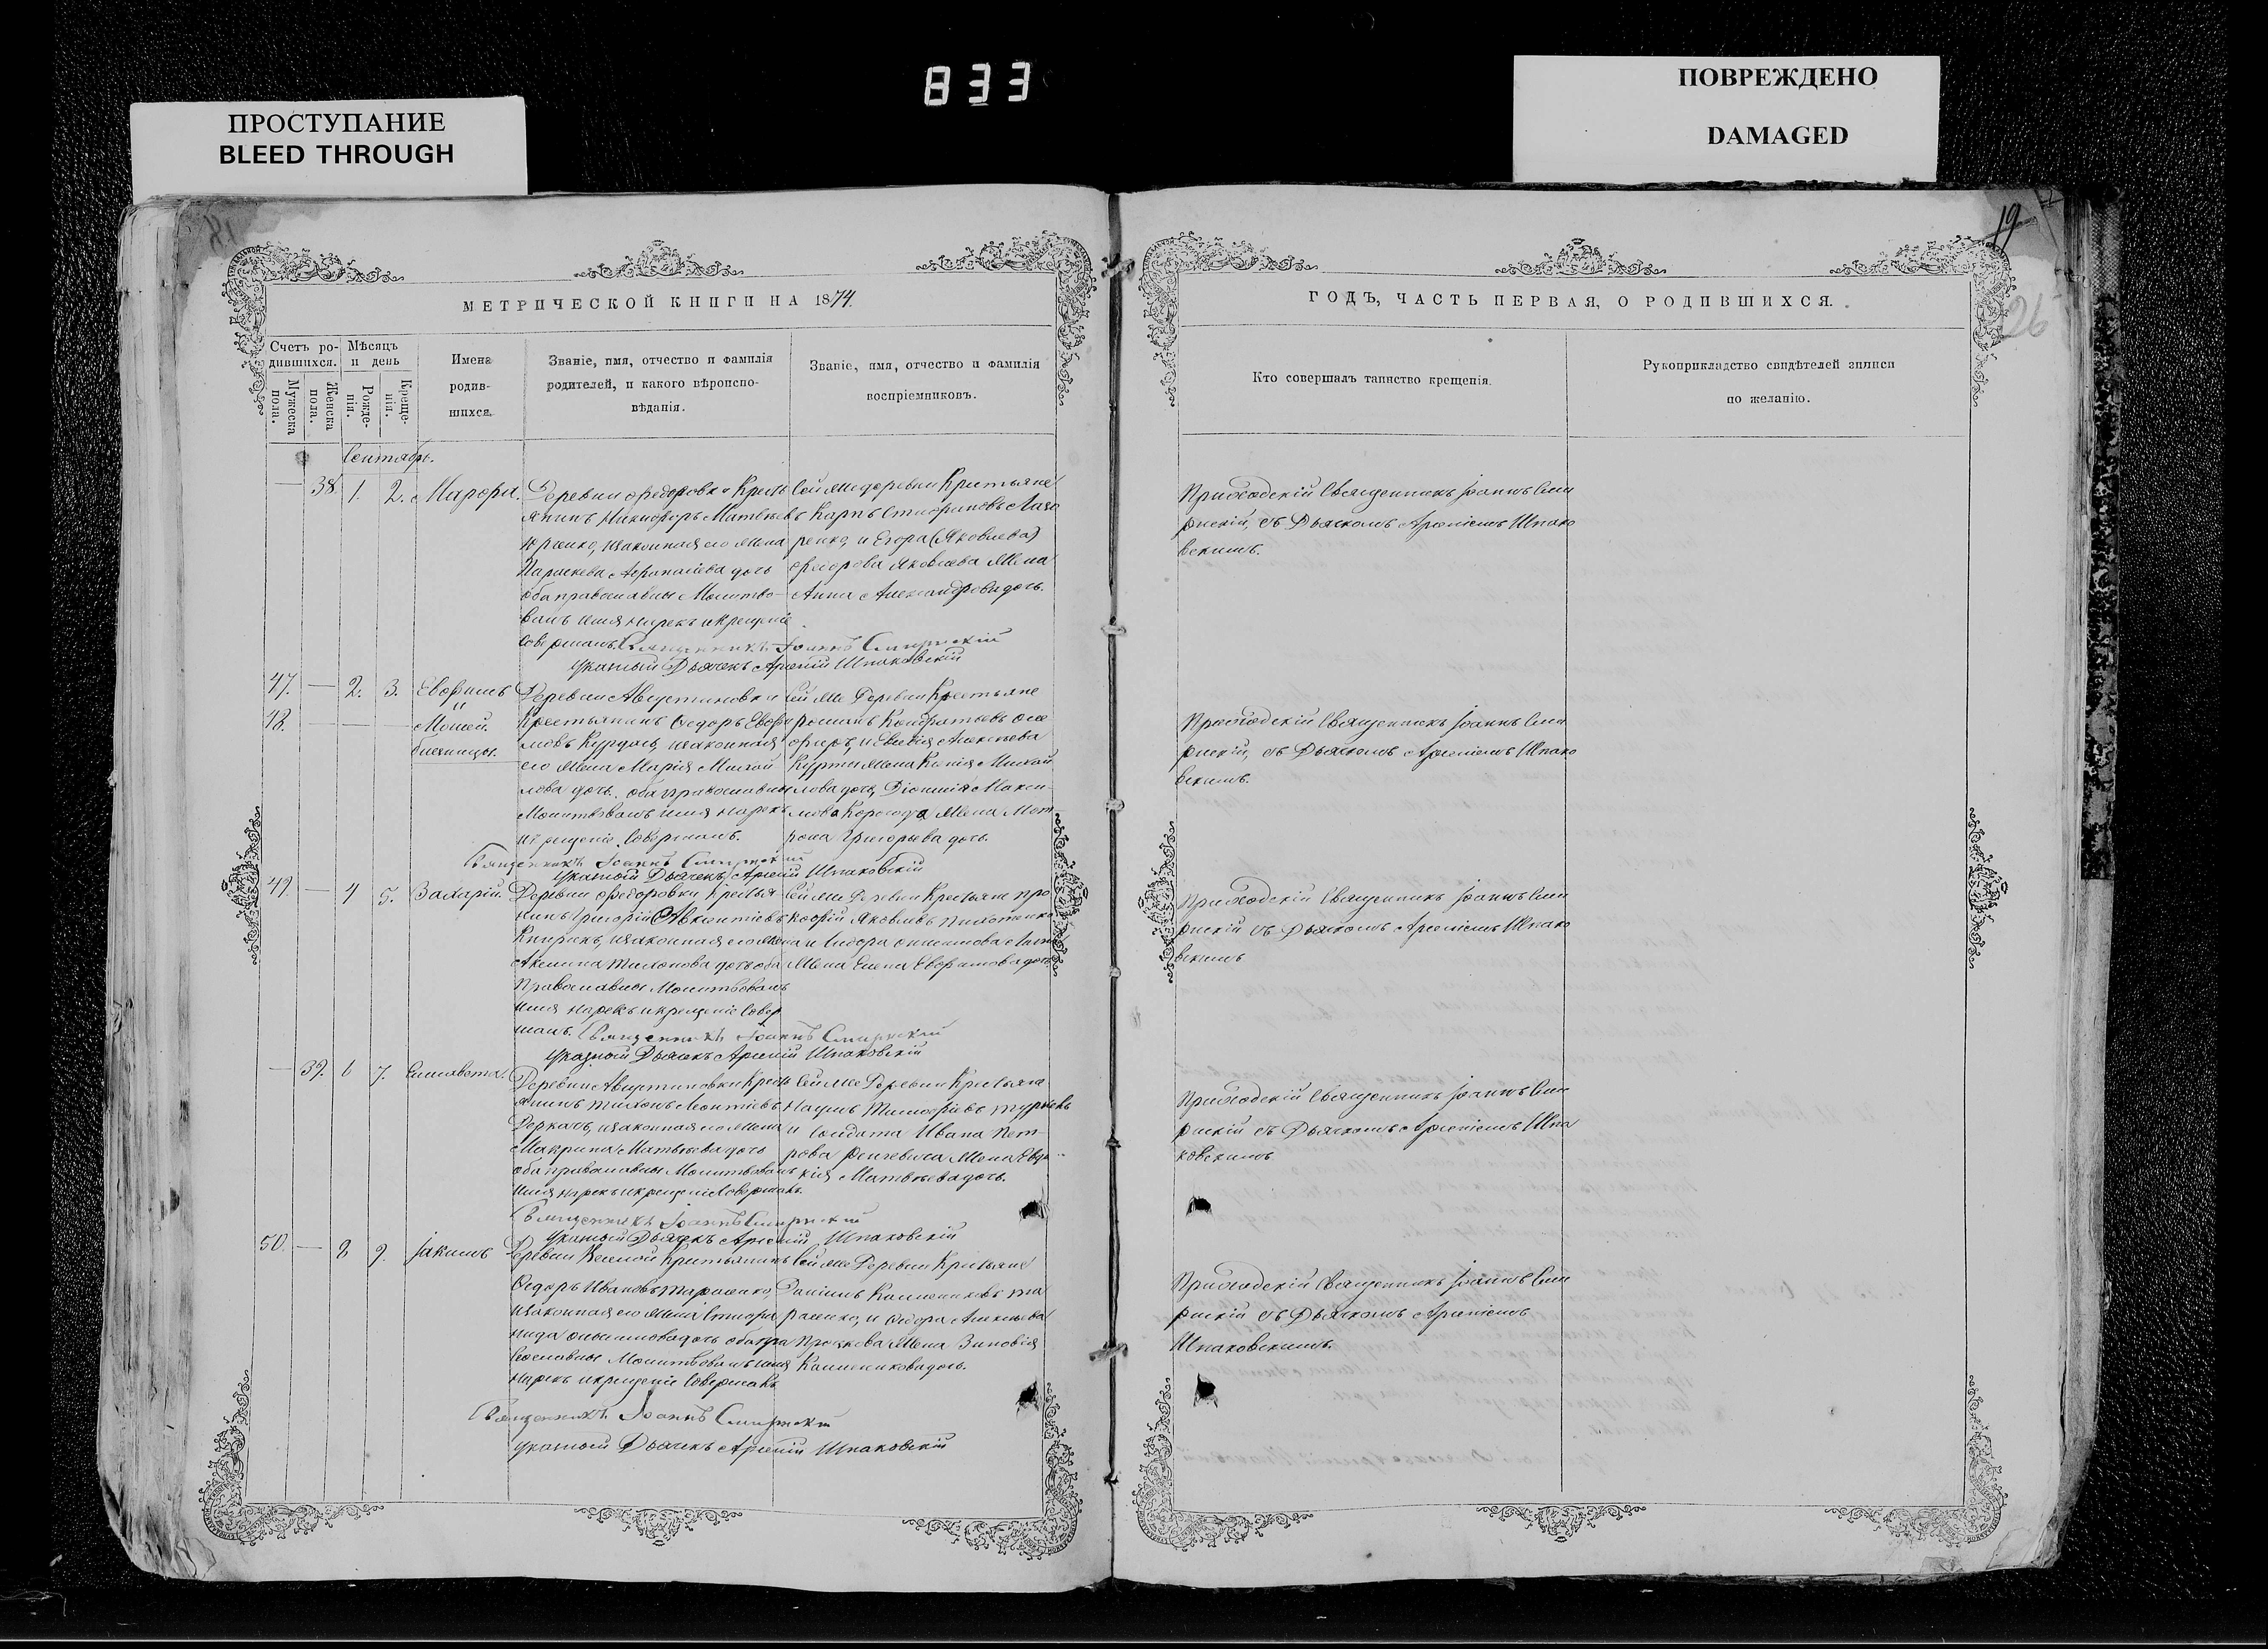 833
ПРОСТУПАНИЕ
BLEED THROUGH
ПОВРЕЖДЕНО
DAMAGED
МЕТРИЧЕСКОЙ КНИГИ НА 1874.
Счетъ ро-
дившихся.
Мужеска
пола.
Женска
пола.
Мѣсяцъ
и день
Рожде-
нія.
Креще-
нія.
Имена
родив-
шихся.
Званіе, имя, отчество и фамилія
родителей, и какого вѣроиспо-
вѣданія.
Званіе, имя, отчество и фамилія
воспріемниковъ.
Сентябрь.
38. 1. 2. Марѳра.
Деревни Федоровки Кресть
янинъ Никифоръ Матвѣевъ
законная его жена
Параскева Афанасіева дочь
оба православны Молитво-
валъ имя нарекъ и крещеніе
совершалъ. Священникъ Іоаннъ Смирнскій
указный Дьячекъ Арсеній Шпаковскій
Сей же деревни Крестьяне
Карпъ
и Егора (Яковлева)
Федорова Яковлева жена
Анна Александрова дочь.
47. 2. 3. Евфимъ
и
48. Моисей.
близнецы.
Деревни Августиновки
Крестьянинъ Ѳедоръ Евфи
мовъ законная
его жена Марія Михай
лова дочь. оба православны
Молитвовалъ имя нарекъ
и крещеніе совершалъ.
Священникъ Іоаннъ Смирнскій
указный Дьячекъ Арсеній Шпаковскій
Сей же Деревни Крестьяне
Романъ Кондратьевъ
жена Ксенія Михай
лова дочь, Діонисія Макси-
мова жена Мат-
рона Григорьева дочь.
49. 4 5. Захарій.
Деревни Федоровки Крестья
нинъ Григорій Авксентіевъ
законная его жена
Акилина Тихонова дочь оба
Православны Молитвовалъ
имя нарекъ и крещеніе совер
шалъ. Священникъ Іоаннъ Смирнскій
указный Дьячекъ Арсеній Шпаковскій
Сей же Деревни Крестьяне Про
кофій Яковлевъ
жена Елена Евфимова дочь.
39. 6 7. Елисавета.
Деревни Августиновки Кресть
янинъ Тихонъ Леонтіевъ
Деркачъ, законная его жена
Макрина Матвѣева дочь
оба православны Молитвовалъ
имя нарекъ и крещеніе совершалъ.
Священникъ Іоаннъ Смирнскій
указный Дьячекъ Арсеній Шпаковскій
Сей же Деревни Крестьяне
Наумъ Тимофѣевъ
и солдата Ивана Пет-
рова жена Евдо
кія Матвѣева дочь.
50. 8 9. Іакимъ
Деревни Веселой Крестьянинъ
Ѳедоръ Ивановъ Тарасенко,
законная его жена Степа
нида дочь оба пра
вославны Молитвовалъ имя
нарекъ и крещеніе совершалъ
Священникъ Іоаннъ Смирнскій
указный Дьячекъ Арсеній Шпаковскій
Сей же Деревни Крестьяне
Даніилъ Каллениковъ Та
расенко, и Ѳедора Алексѣева
жена Зиновія
Калленикова дочь.
19
26
ГОДЪ, ЧАСТЬ ПЕРВАЯ, О РОДИВШИХСЯ.
Кто совершалъ таинство крещенія.
Рукоприкладство свидѣтелей записи
по желанію.
Приходскій Священникъ Іоаннъ Сми
рнскій, съ Дьячкомъ Арсеніемъ Шпако
вскимъ.
Приходскій Священникъ Іоаннъ Сми
рнскій, съ Дьячкомъ Арсеніемъ Шпако
вскимъ.
Приходскій Священникъ Іоаннъ Сми
рнскій съ Дьячкомъ Арсеніемъ Шпако
вскимъ
Приходскій Священникъ Іоаннъ Сми
рнскій съ Дьячкомъ Арсеніемъ Шпа
ковскимъ
Приходскій Священникъ Іоаннъ Сми
рнскій съ Дьячкомъ Арсеніемъ
Шпаковскимъ.